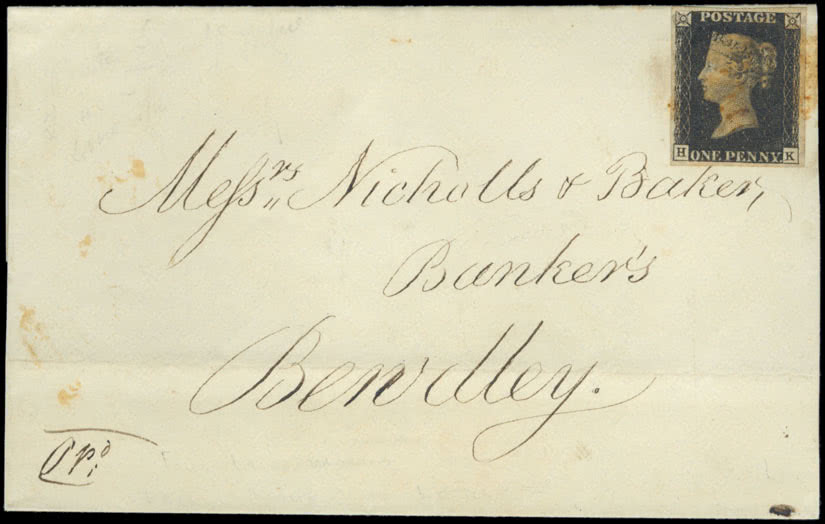 POSTAGE
H ONE PENNY K
Messrs Nicholls & Baker,
Banker's
Bewdley.